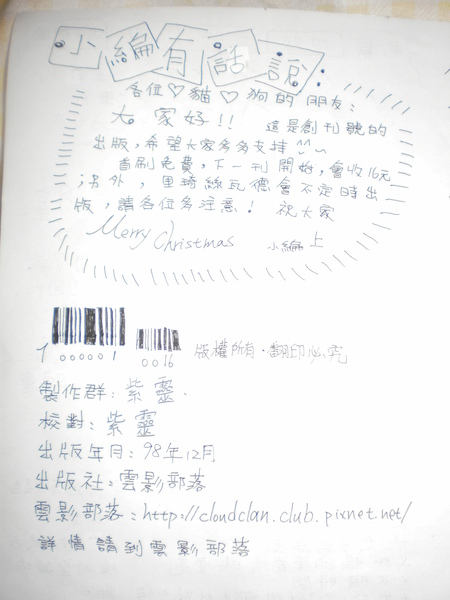 小編有話說:
各位♡貓♡狗的朋友:
大家好!! 這是創刊號的
出版,希望大家多多支持^^~
首刷免費,下一刊開始,會收16元
;另外,里琦絲瓦德會不定時出
版,請各位多注意! 祝大家
Merry Christmas 小編上
1 000001
0016
版權所有·翻印必究
製作群:紫靈.
校對:紫靈
出版年月:98年12月
出版社:雲影部落
雲影部落:http://cloudclan.club.pixnet.net/
詳情請到雲影部落